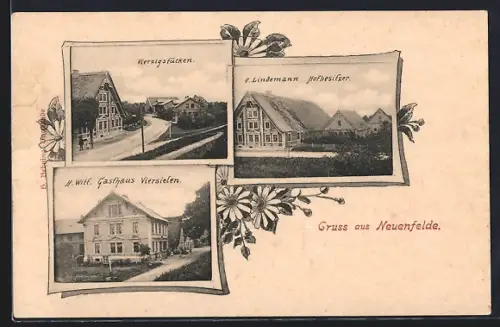 Viersigstücken.
H. Lindemann Hofbesitzer.
H. Witt. Gasthaus Viersielen.
Gruss aus Neuenfelde.